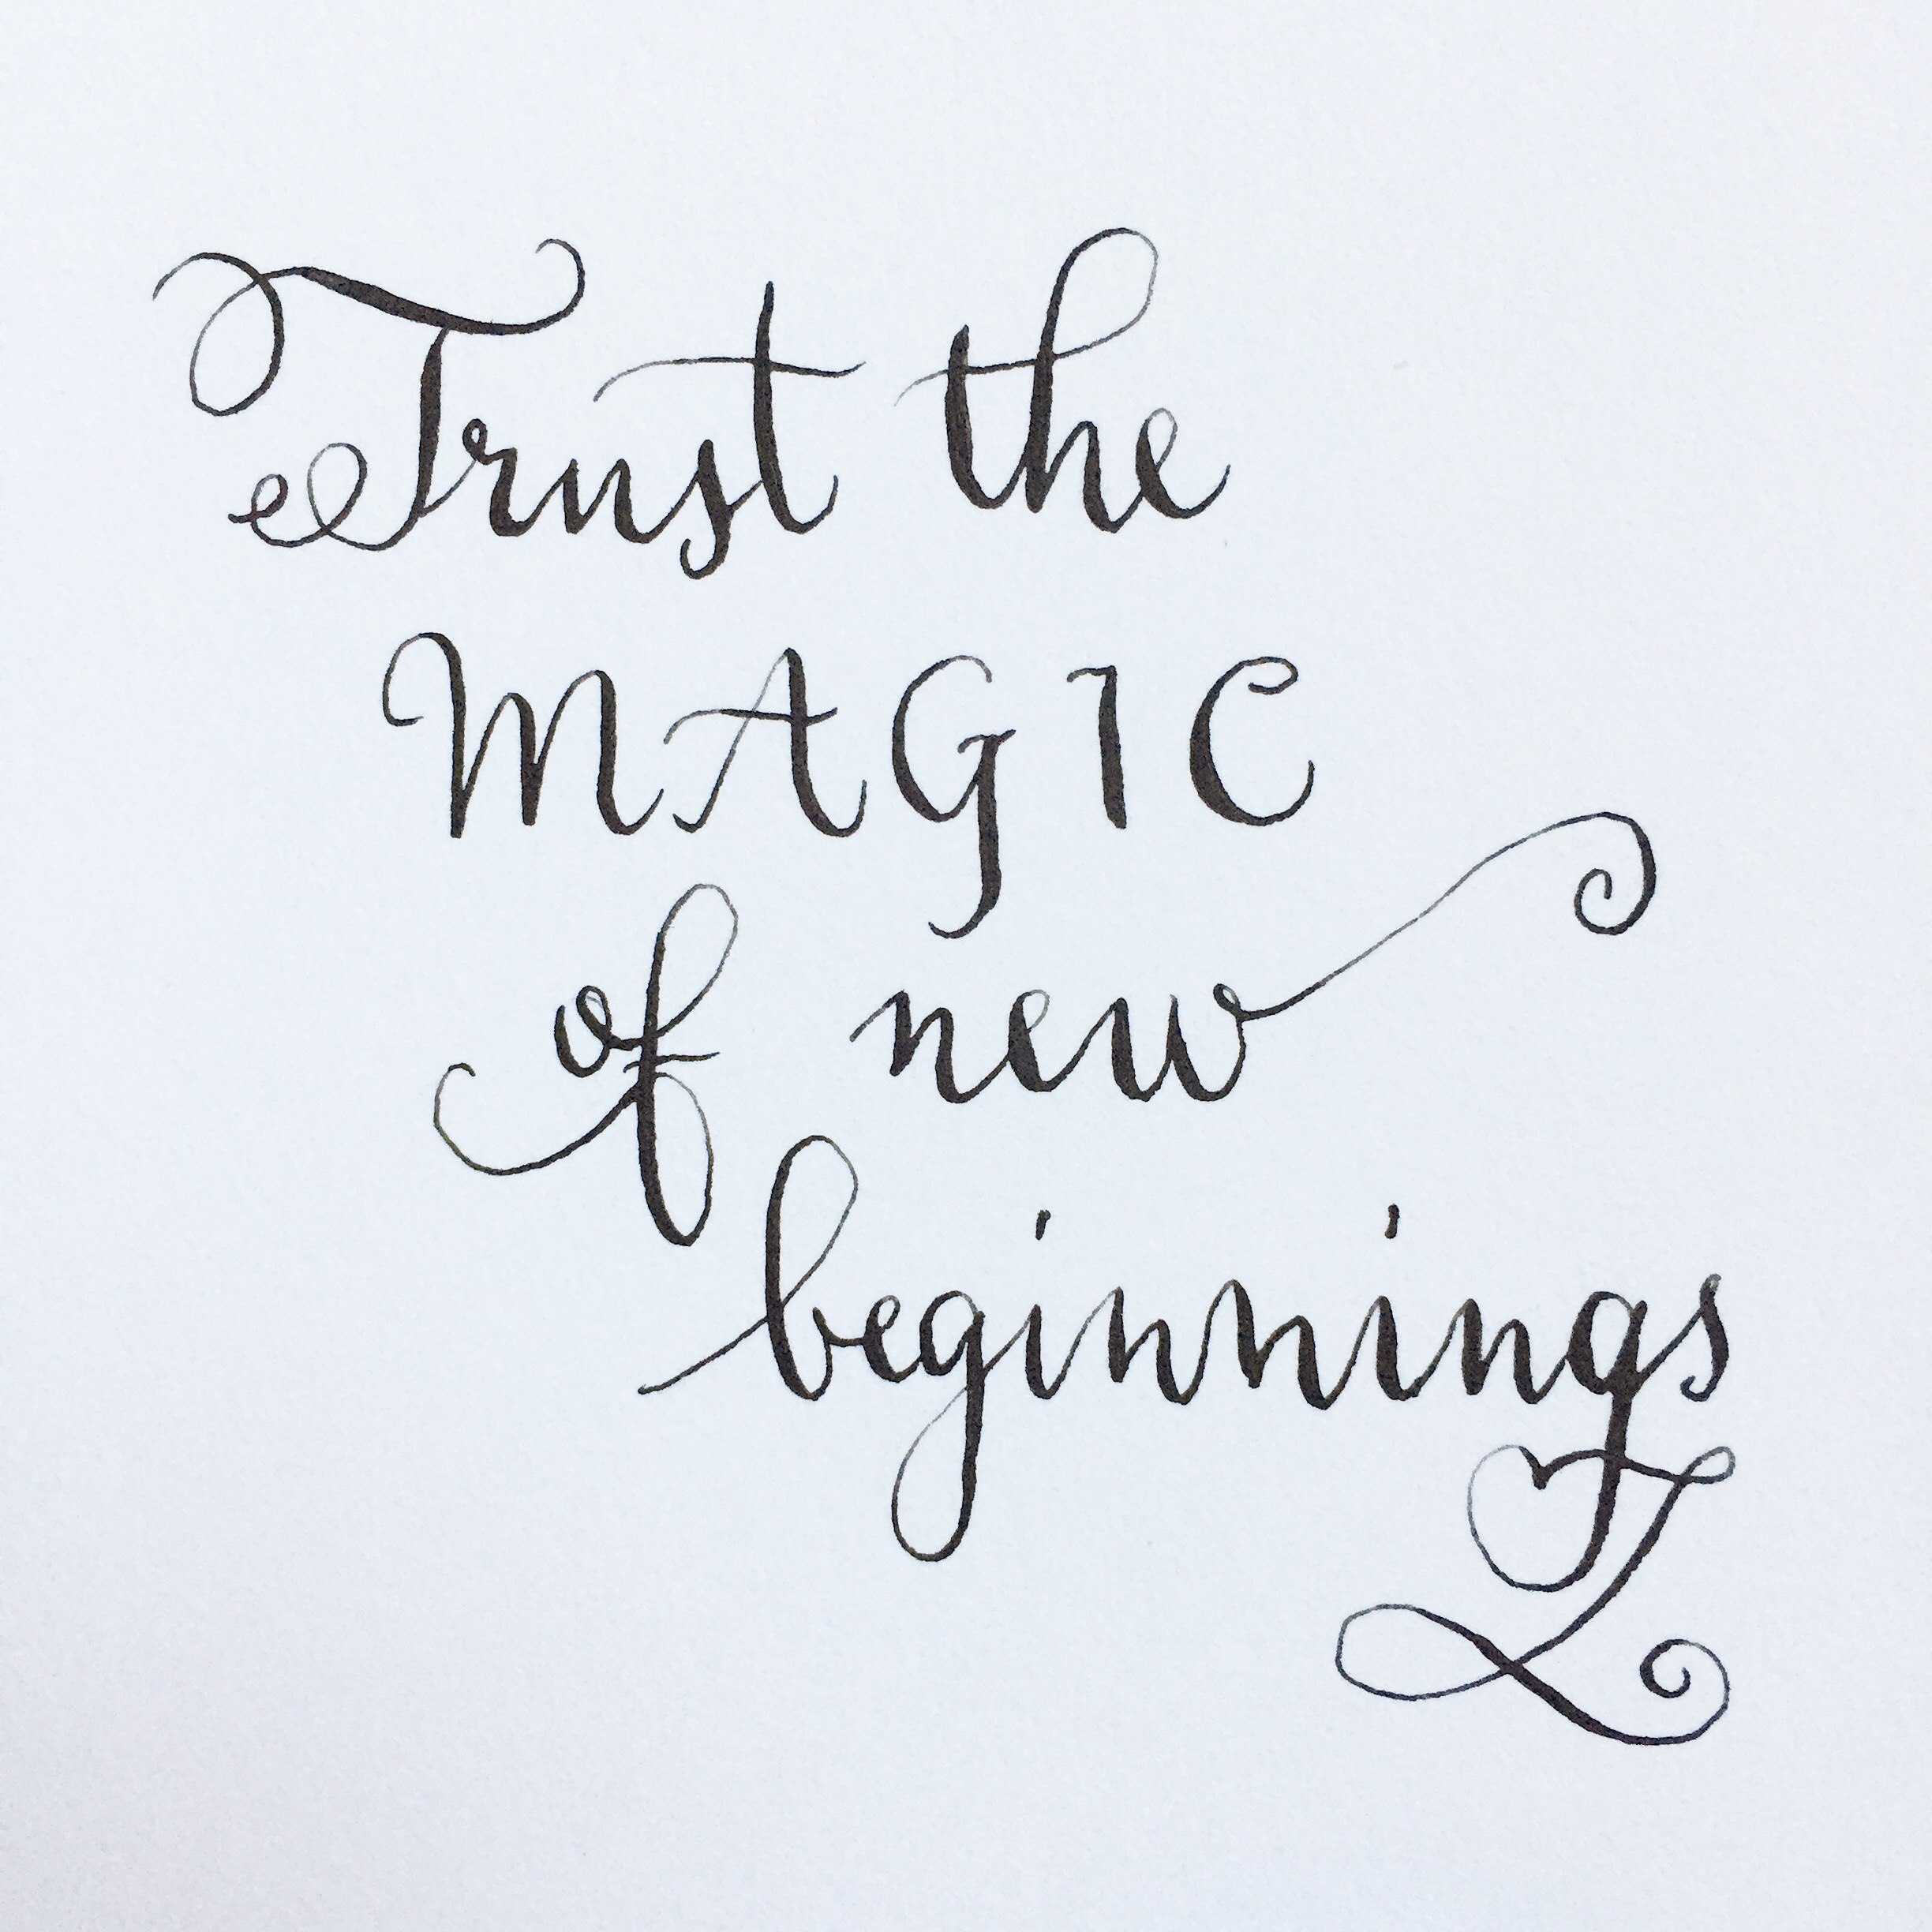 Trust the
MAGIC
of new
beginnings